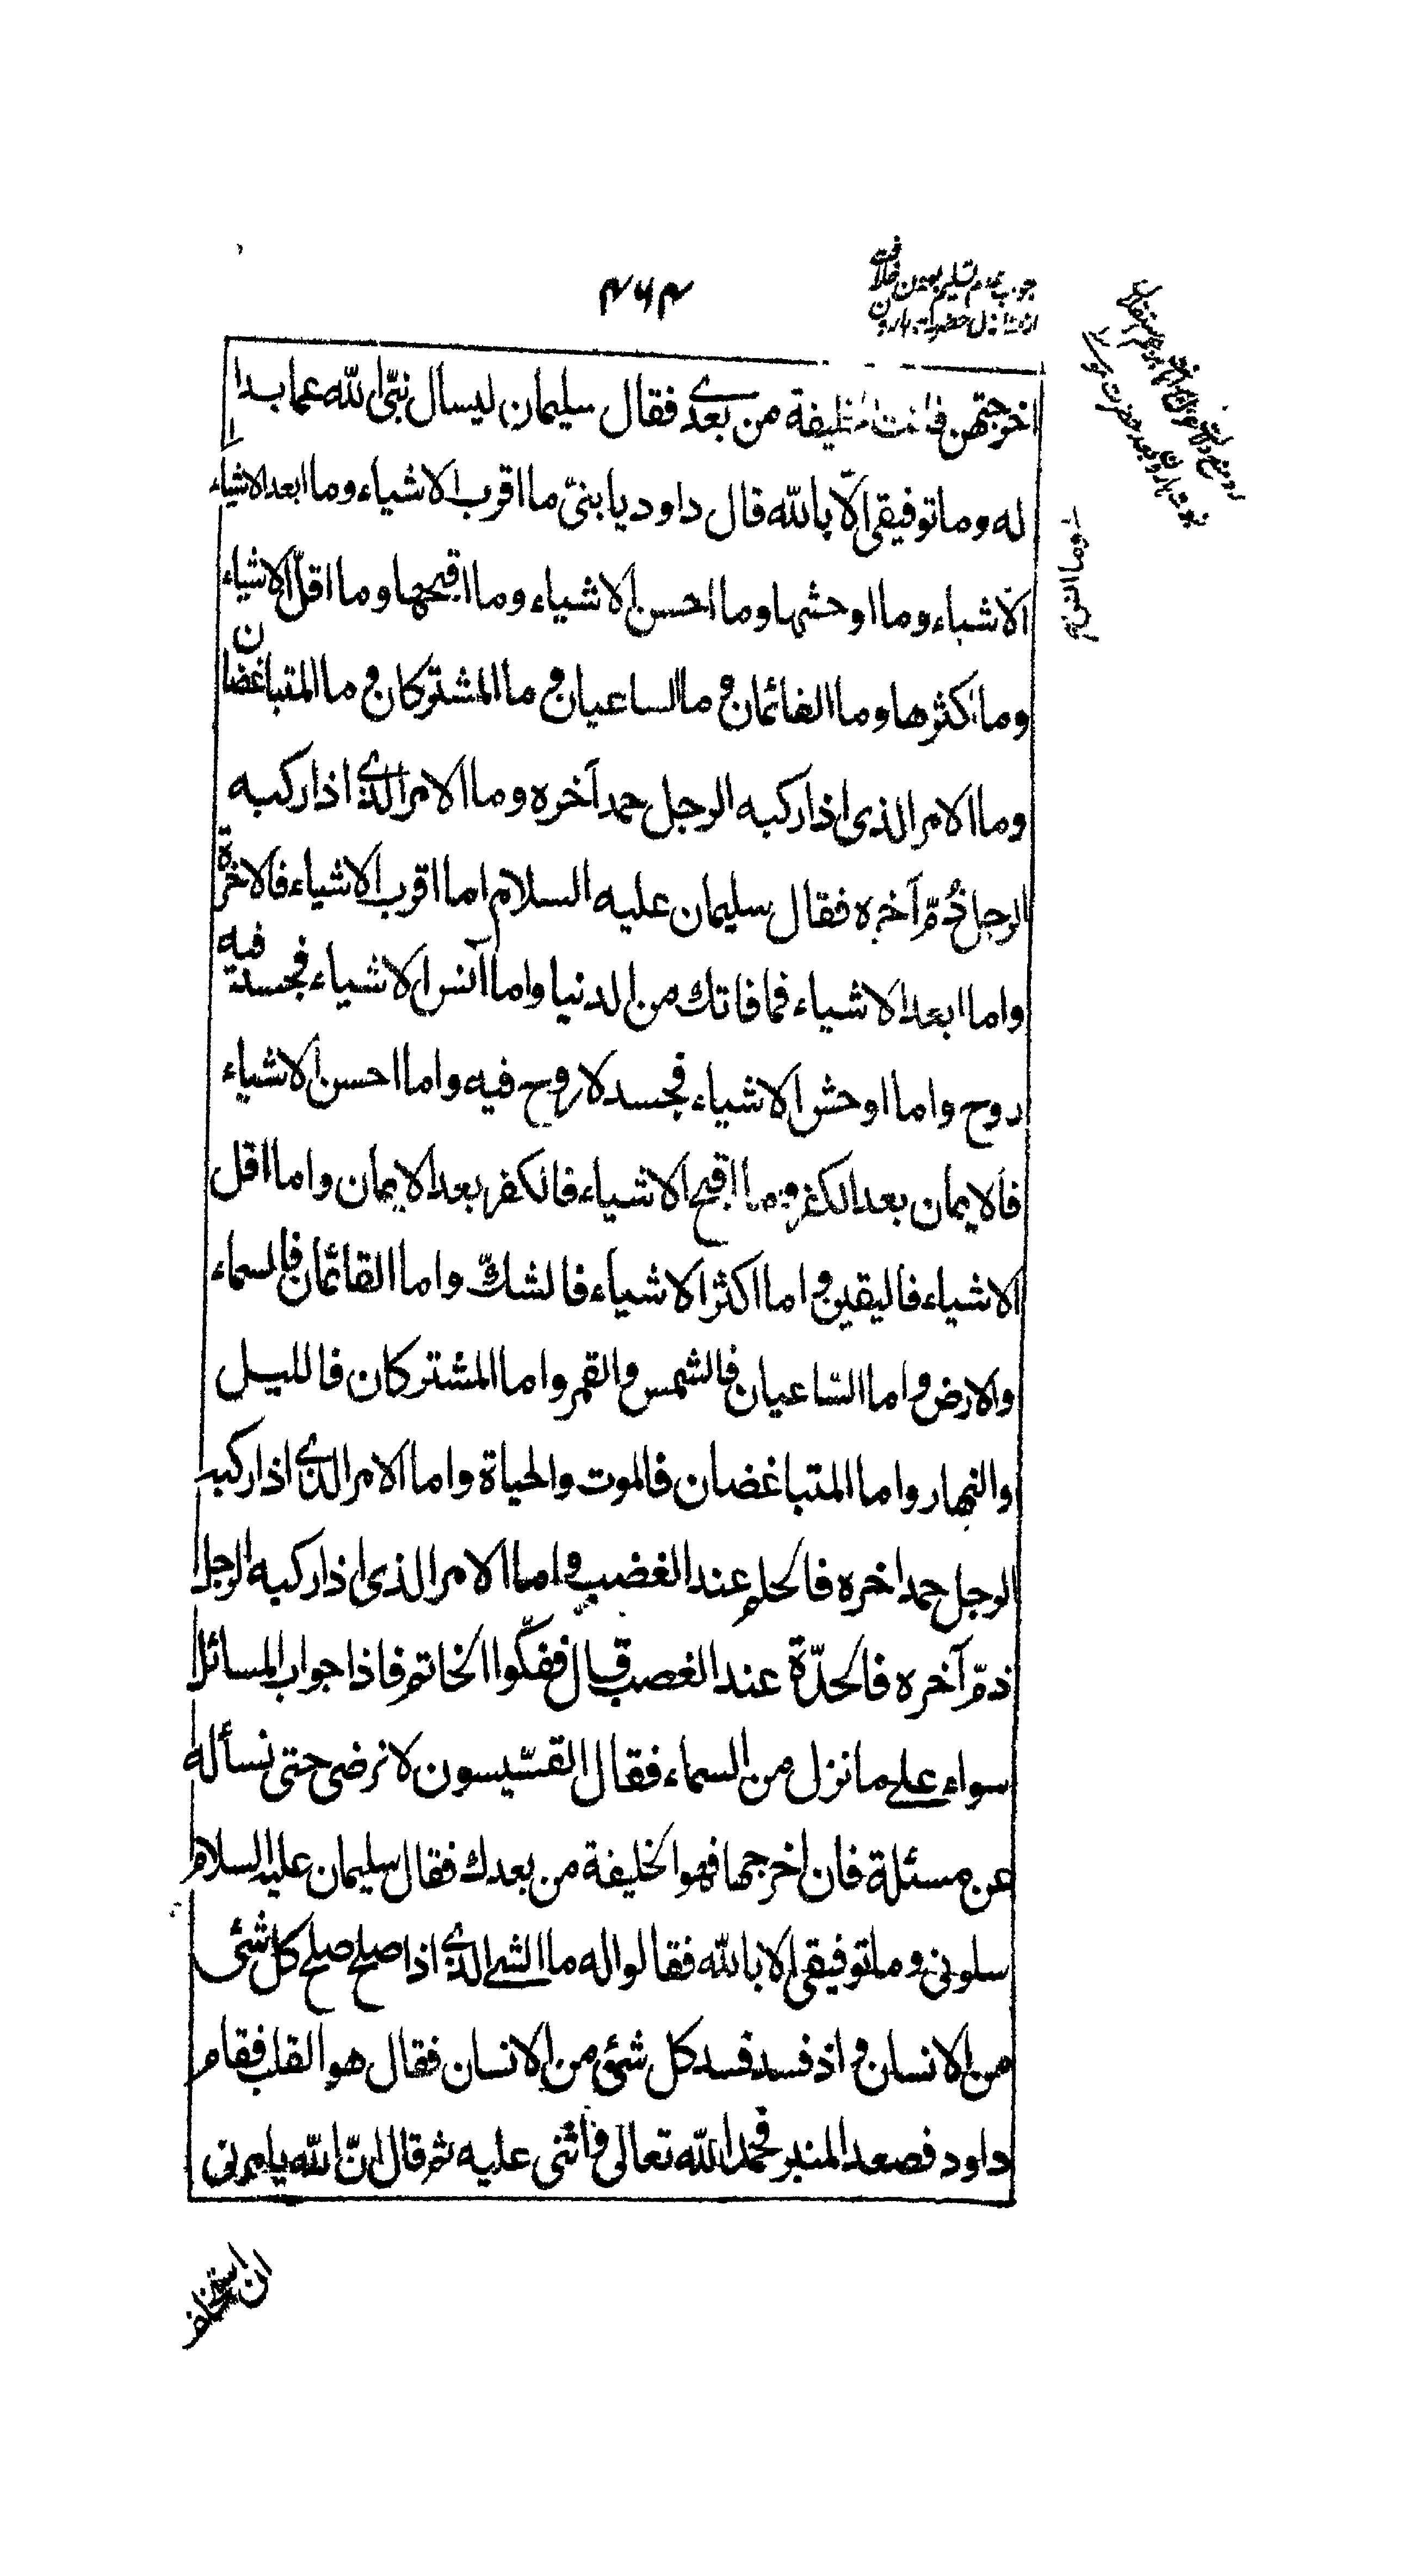 ۴۶۴
اخرجتهن فانت الخليفة من بعدي فقال سليمان ليسأل نبيّ الله عما بدا
له وما توفيقي الّا بالله قال داود يا بنىّ ما اقرب الاشياء وما ابعد الاشياء
وما آنس
الاشياء وما اوحشها وما احسن الاشياء وما اقبحها وما اقلّ الاشياء
وما اكثرها وما القائمان وما الساعيان وما المشتركان وما المتباغضان
وما الامر الذى اذا ركبه الرجل حمد آخره وما الامر الذي اذا ركبه
الرجل ذُمّ آخره فقال سليمان عليه السلام اما اقرب الاشياء فالاخرة
واما ابعد الاشياء فما فاتك من الدنيا واما آنس الاشياء فجسد فيه
روح واما اوحش الاشياء فجسد لا روح فيه واما احسن الاشياء
فالايمان بعد الكفر وما اقبح الاشياء فالكفر بعد الايمان واما اقل
الاشياء فاليقين واما اكثر الاشياء فالشكّ واما القائمان فالسماء
والارض واما الساعيان فالشمس والقمر واما المشتركان فالليل
والنهار واما المتباغضان فالموت والحياة واما الامر الذي اذا ركبه
الرجل حمد اخره فالحلم عند الغضب واما الامر الذى اذا ركبه الرجل
ذمّ آخره فالحدّة عند الغصب قال ففكّوا الخاتم فاذا جواب المسائل
سواء على ما نزل من السماء فقال القسّيسون لا نرضى حتى نسأله
عن مسئلة فان اخرجها فهو الخليفة من بعدك فقال سليمان عليه السلام
سلونى وما توفيقى الا بالله فقالوا له ما الشئ الذي اذا صلح صلح كل شئى
من الانسان واذ فسد فسد كل شئى من الانسان فقال هو القلب فقام
داود فصعد المنبر فحمد الله تعالى واثنى عليه ثم قال انّ الله يامرنى
ان استخلف